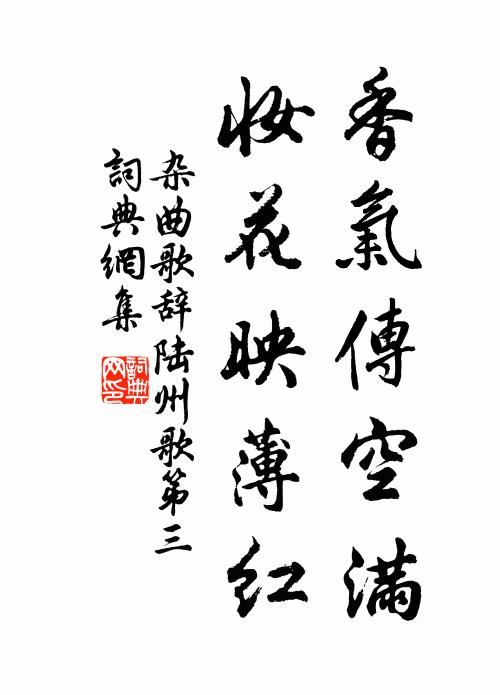 香氣傳空滿
妝花映薄紅
杂曲歌辞陆州歌第三
詞典網集
詞典
网印